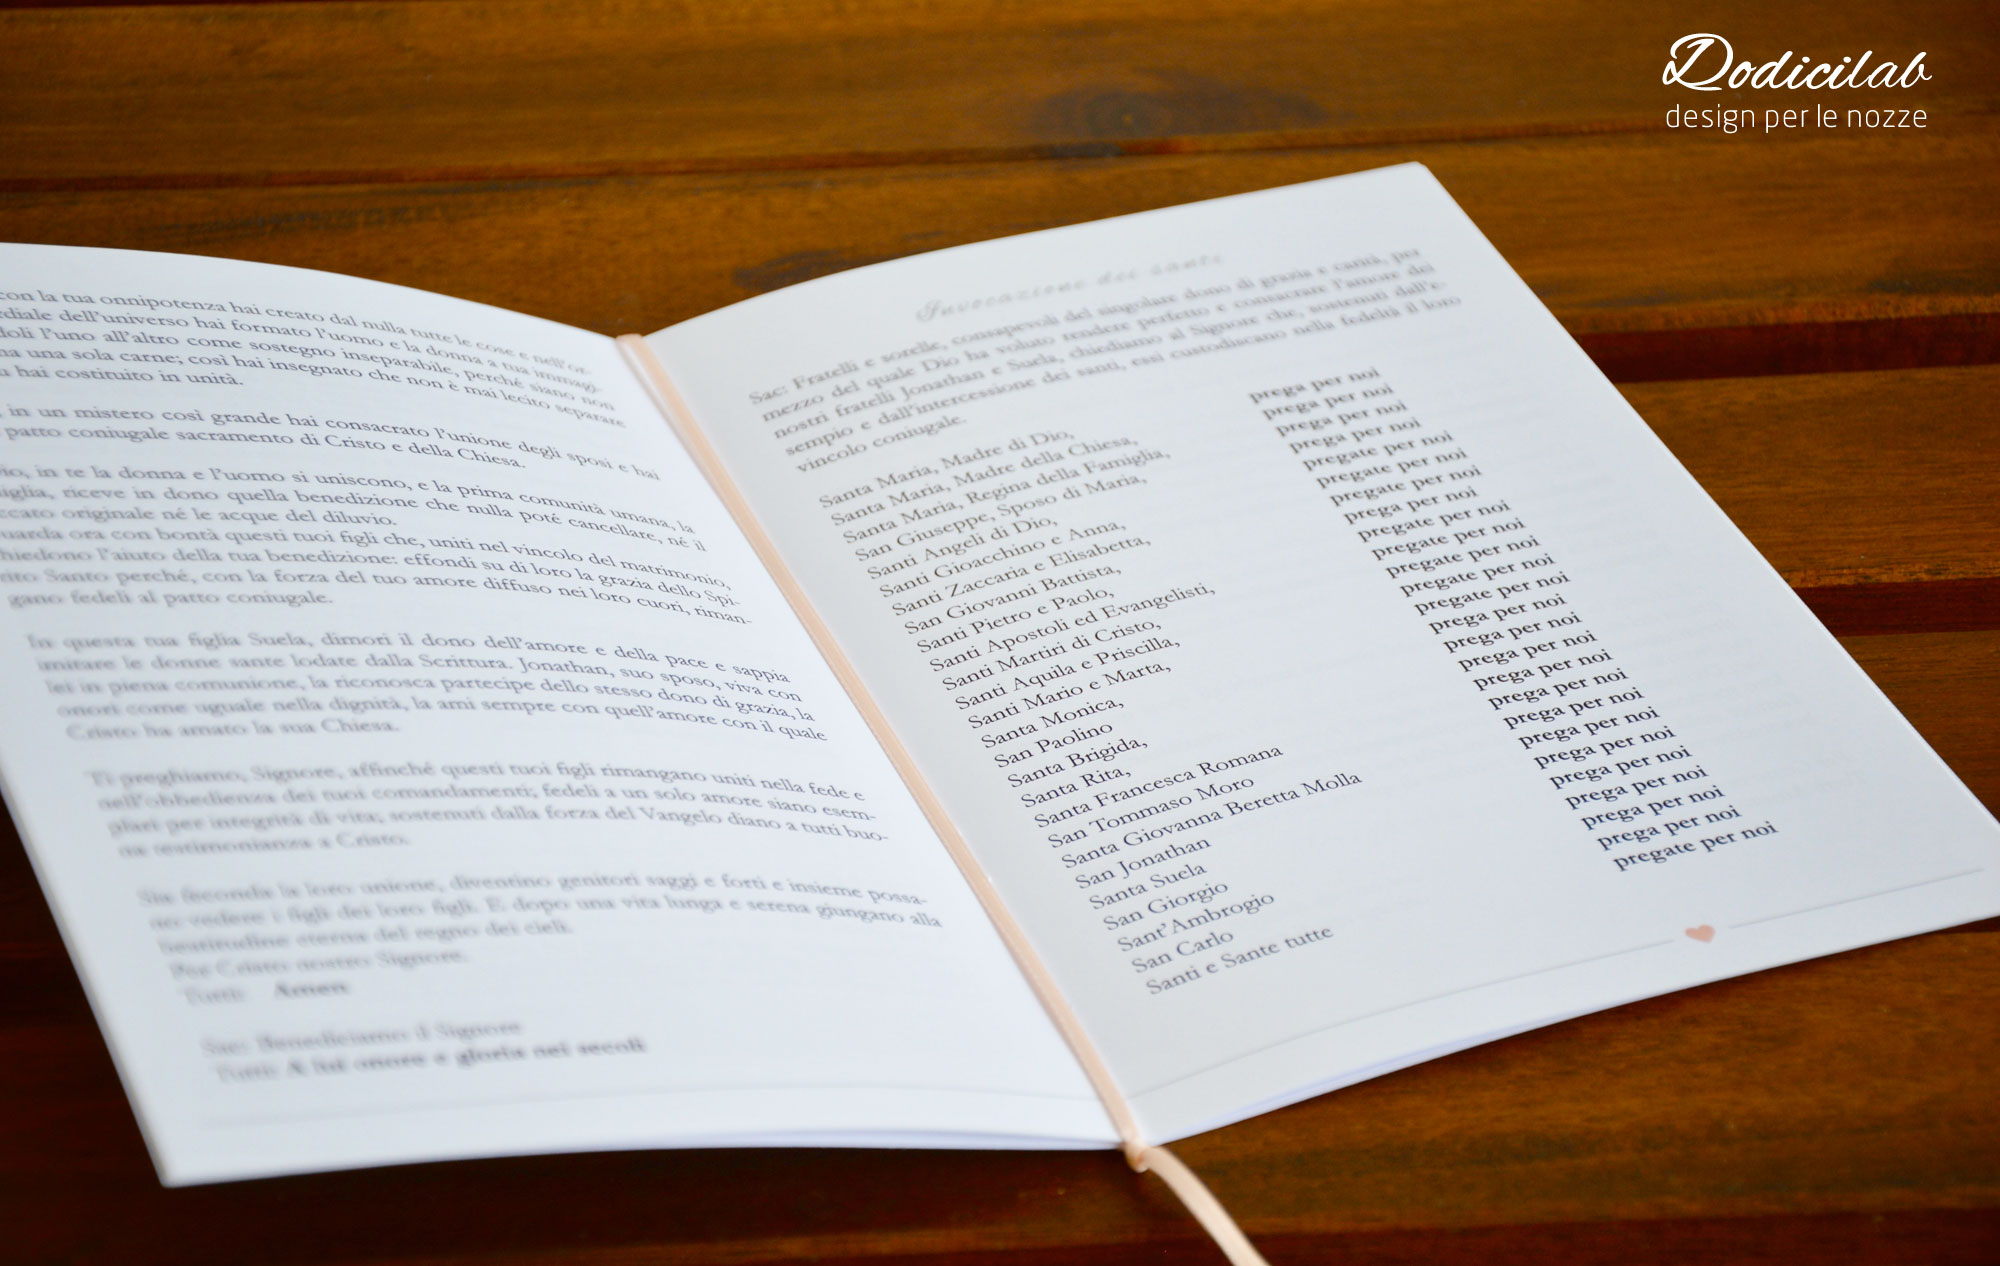 Dodicilab
design per le nozze
con la tua onnipotenza hai creato dal nulla tutte le cose e nell'or-
dell'universo hai formato l'uomo e la donna a tua immagi-
l'uno all'altro come sostegno inseparabile, perché siano non
una sola carne; così hai insegnato che non è mai lecito separare
hai costituito in unità.
in un mistero così grande hai consacrato l'unione degli sposi e hai
patto coniugale sacramento di Cristo e della Chiesa.
in te la donna e l'uomo si uniscono, e la prima comunità umana, la
riceve in dono quella benedizione che nulla poté cancellare, né il
originale né le acque del diluvio.
ora con bontà questi tuoi figli che, uniti nel vincolo del matrimonio,
l'aiuto della tua benedizione: effondi su di loro la grazia dello Spi-
Santo perché, con la forza del tuo amore diffuso nei loro cuori, riman-
gano fedeli al patto coniugale.
In questa tua figlia Suela, dimori il dono dell'amore e della pace e sappia
imitare le donne sante lodate dalla Scrittura. Jonathan, suo sposo, viva con
lei in piena comunione, la riconosca partecipe dello stesso dono di grazia, la
onori come uguale nella dignità, la ami sempre con quell'amore con il quale
Cristo ha amato la sua Chiesa.
Ti preghiamo, Signore, affinché questi tuoi figli rimangano uniti nella fede e
nell'obbedienza dei tuoi comandamenti; fedeli a un solo amore siano esem-
plari per integrità di vita; sostenuti dalla forza del Vangelo diano a tutti buo-
na testimonianza a Cristo.
Sia feconda la loro unione, diventino genitori saggi e forti e insieme possa-
no vedere i figli dei loro figli. E dopo una vita lunga e serena giungano alla
beatitudine eterna del regno dei cieli.
Per Cristo nostro Signore.
Tutti: Amen
Sac: Benediciamo il Signore
Tutti: A lui onore e gloria nei secoli
Invocazione dei santi
Sac: Fratelli e sorelle, consapevoli del singolare dono di grazia e carità, per
mezzo del quale Dio ha voluto rendere perfetto e consacrare l'amore dei
nostri fratelli Jonathan e Suela, chiediamo al Signore che, sostenuti dall'e-
sempio e dall'intercessione dei santi, essi custodiscano nella fedeltà il loro
vincolo coniugale.
Santa Maria, Madre di Dio, prega per noi
Santa Maria, Madre della Chiesa, prega per noi
Santa Maria, Regina della Famiglia, prega per noi
San Giuseppe, Sposo di Maria, prega per noi
Santi Angeli di Dio, pregate per noi
Santi Gioacchino e Anna, pregate per noi
Santi Zaccaria e Elisabetta, pregate per noi
San Giovanni Battista, prega per noi
Santi Pietro e Paolo, pregate per noi
Santi Apostoli ed Evangelisti, pregate per noi
Santi Martiri di Cristo, pregate per noi
Santi Aquila e Priscilla, pregate per noi
Santi Mario e Marta, pregate per noi
Santa Monica, prega per noi
San Paolino prega per noi
Santa Brigida, prega per noi
Santa Rita, prega per noi
Santa Francesca Romana prega per noi
San Tommaso Moro prega per noi
Santa Giovanna Beretta Molla prega per noi
San Jonathan prega per noi
Santa Suela prega per noi
San Giorgio prega per noi
Sant'Ambrogio prega per noi
San Carlo prega per noi
Santi e Sante tutte pregate per noi